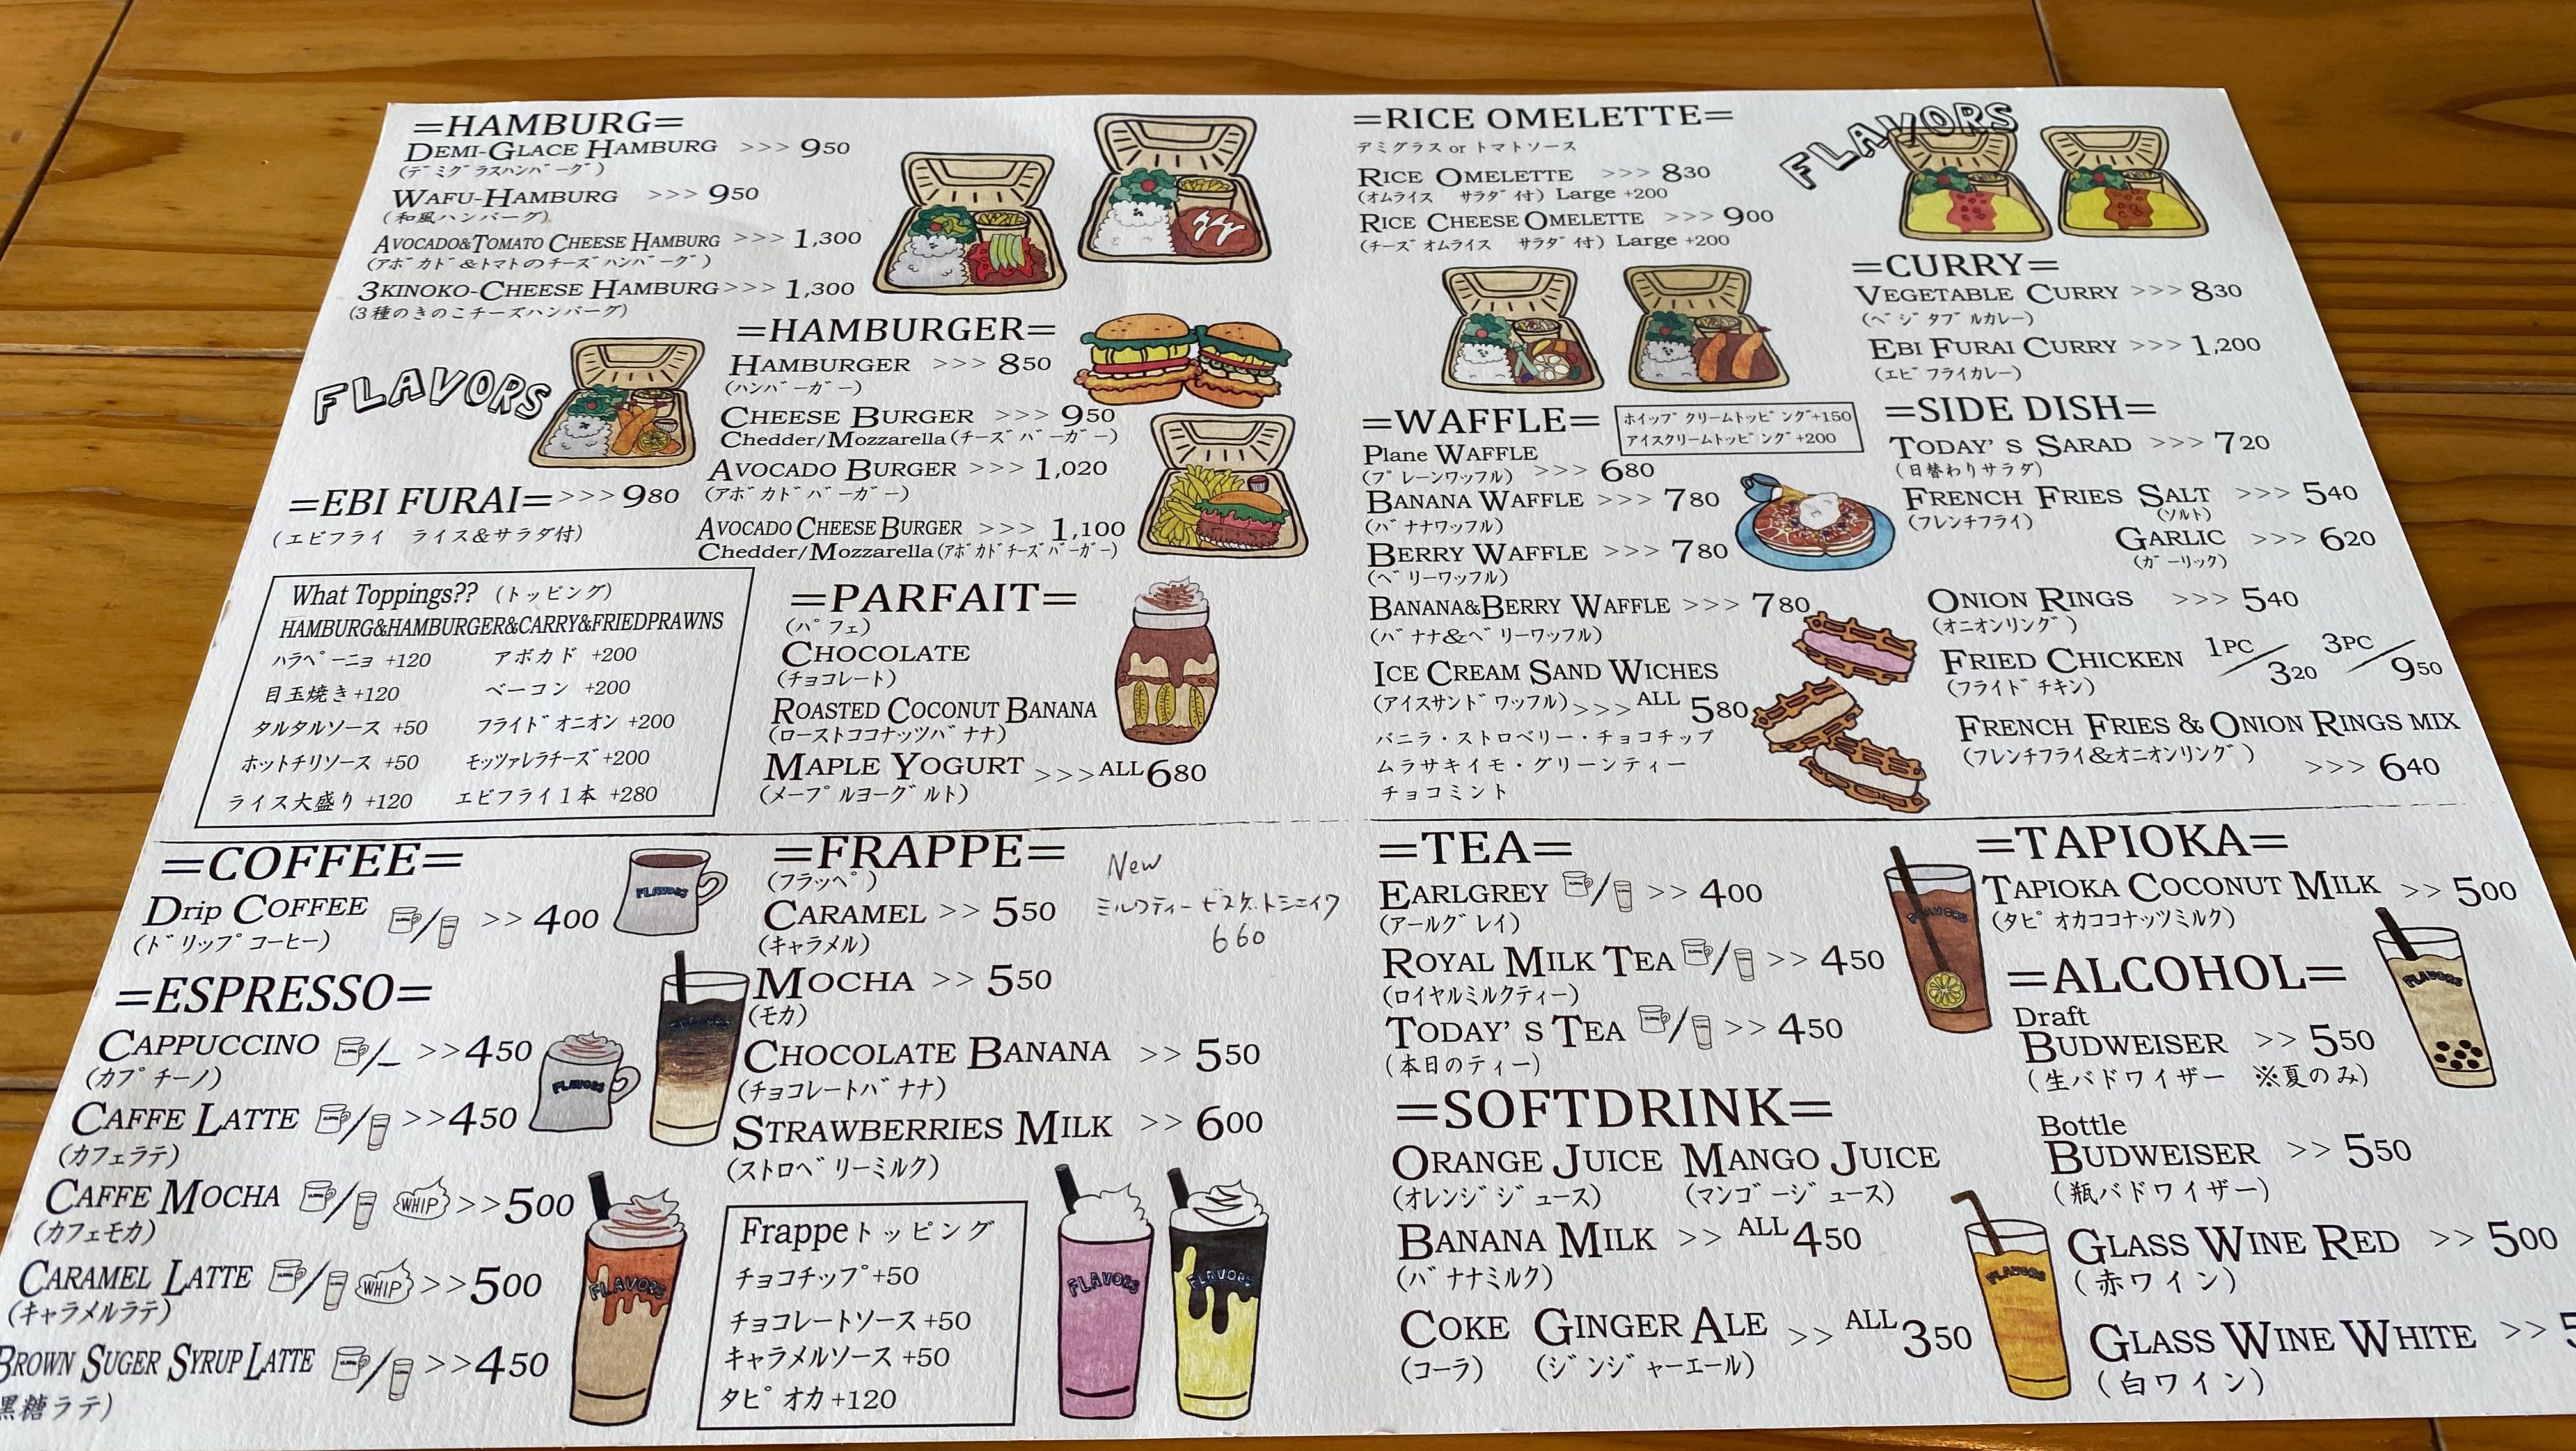 =HAMBURG=
DEMI-GLACE HAMBURG >>> 950
(デミグラスハンバーグ)
WAFU-HAMBURG >>> 950
(和風ハンバーグ)
AVOCADO&TOMATO CHEESE HAMBURG >>> 1,300
(アボカド&トマトのチーズハンバーグ)
3KINOKO-CHEESE HAMBURG>>> 1,300
(3種のきのこチーズハンバーグ)
FLAVORS
=EBI FURAI=>>> 980
(エビフライ ライス&サラダ付)
=HAMBURGER=
HAMBURGER >>> 850
(ハンバーガー)
CHEESE BURGER >>> 950
Chedder/Mozzarella(チーズバーガー)
AVOCADO BURGER >>> 1,020
(アボカドバーガー)
AVOCADO CHEESE BURGER >>> 1,100
Chedder/Mozzarella(アボカドチーズバーガー)
What Toppings?? (トッピング)
HAMBURG&HAMBURGER&CARRY&FRIEDPRAWNS
ハラペーニョ +120 アボカド +200
目玉焼き+120 ベーコン +200
タルタルソース +50 フライドオニオン +200
ホットチリソース +50 モッツァレラチーズ+200
ライス大盛り +120 エビフライ1本 +280
=PARFAIT=
(パフェ)
CHOCOLATE
(チョコレート)
ROASTED COCONUT BANANA
(ローストココナッツバナナ)
MAPLE YOGURT >>>ALL680
(メープルヨーグルト)
=RICE OMELETTE=
デミグラス or トマトソース
RICE OMELETTE >>> 830
(オムライス サラダ付) Large +200
RICE CHEESE OMELETTE >>> 900
(チーズオムライス サラダ付) Large +200
FLAVORS
=CURRY=
VEGETABLE CURRY >>> 830
(ベジタブルカレー)
EBI FURAI CURRY >>> 1,200
(エビフライカレー)
=WAFFLE=
ホイップクリームトッピング+150
アイスクリームトッピング+200
Plane WAFFLE
(プレーンワッフル) >>> 680
BANANA WAFFLE >>> 780
(バナナワッフル)
BERRY WAFFLE >>> 780
(ベリーワッフル)
BANANA&BERRY WAFFLE >>> 780
(バナナ&ベリーワッフル)
ICE CREAM SAND WICHES
(アイスサンドワッフル)>>>ALL 580
バニラ・ストロベリー・チョコチップ
ムラサキイモ・グリーンティー
チョコミント
=SIDE DISH=
TODAY' S SARAD >>> 720
(日替わりサラダ)
FRENCH FRIES SALT >>> 540
(フレンチフライ) (ソルト)
GARLIC >>> 620
(ガーリック)
ONION RINGS >>> 540
(オニオンリング)
FRIED CHICKEN 1PC/320 3PC/950
(フライドチキン)
FRENCH FRIES & ONION RINGS MIX
(フレンチフライ&オニオンリング)
>>> 640
=COFFEE=
Drip COFFEE / >> 400
(ドリップコーヒー)
FLAVORS
=ESPRESSO=
CAPPUCCINO /– >>450
(カプチーノ)
FLAVORS
CAFFE LATTE / >>450
(カフェラテ)
CAFFE MOCHA / WHIP >>500
(カフェモカ)
CARAMEL LATTE / WHIP >>500
(キャラメルラテ)
BROWN SUGER SYRUP LATTE / >>450
黒糖ラテ)
FLAVORS
=FRAPPE=
(フラッペ)
CARAMEL >> 550
(キャラメル)
New
ミルクティービスケットシェイク
660
MOCHA >> 550
(モカ)
CHOCOLATE BANANA >> 550
(チョコレートバナナ)
STRAWBERRIES MILK >> 600
(ストロベリーミルク)
Frappeトッピング
チョコチップ+50
チョコレートソース +50
キャラメルソース +50
タピオカ +120
FLAVORS
FLAVORS
=TEA=
EARLGREY / >> 400
(アールグレイ)
ROYAL MILK TEA / >> 450
(ロイヤルミルクティー)
TODAY' S TEA / >> 450
(本日のティー)
FLAVORS
=SOFTDRINK=
ORANGE JUICE MANGO JUICE
(オレンジジュース) (マンゴージュース)
BANANA MILK >> ALL450
(バナナミルク)
COKE GINGER ALE >> ALL350
(コーラ) (ジンジャーエール)
FLAVORS
=TAPIOKA=
TAPIOKA COCONUT MILK >> 500
(タピオカココナッツミルク)
FLAVORS
=ALCOHOL=
Draft
BUDWEISER >> 550
(生バドワイザー ※夏のみ)
Bottle
BUDWEISER >> 550
(瓶バドワイザー)
GLASS WINE RED >> 500
(赤ワイン)
GLASS WINE WHITE >> 5
(白ワイン)